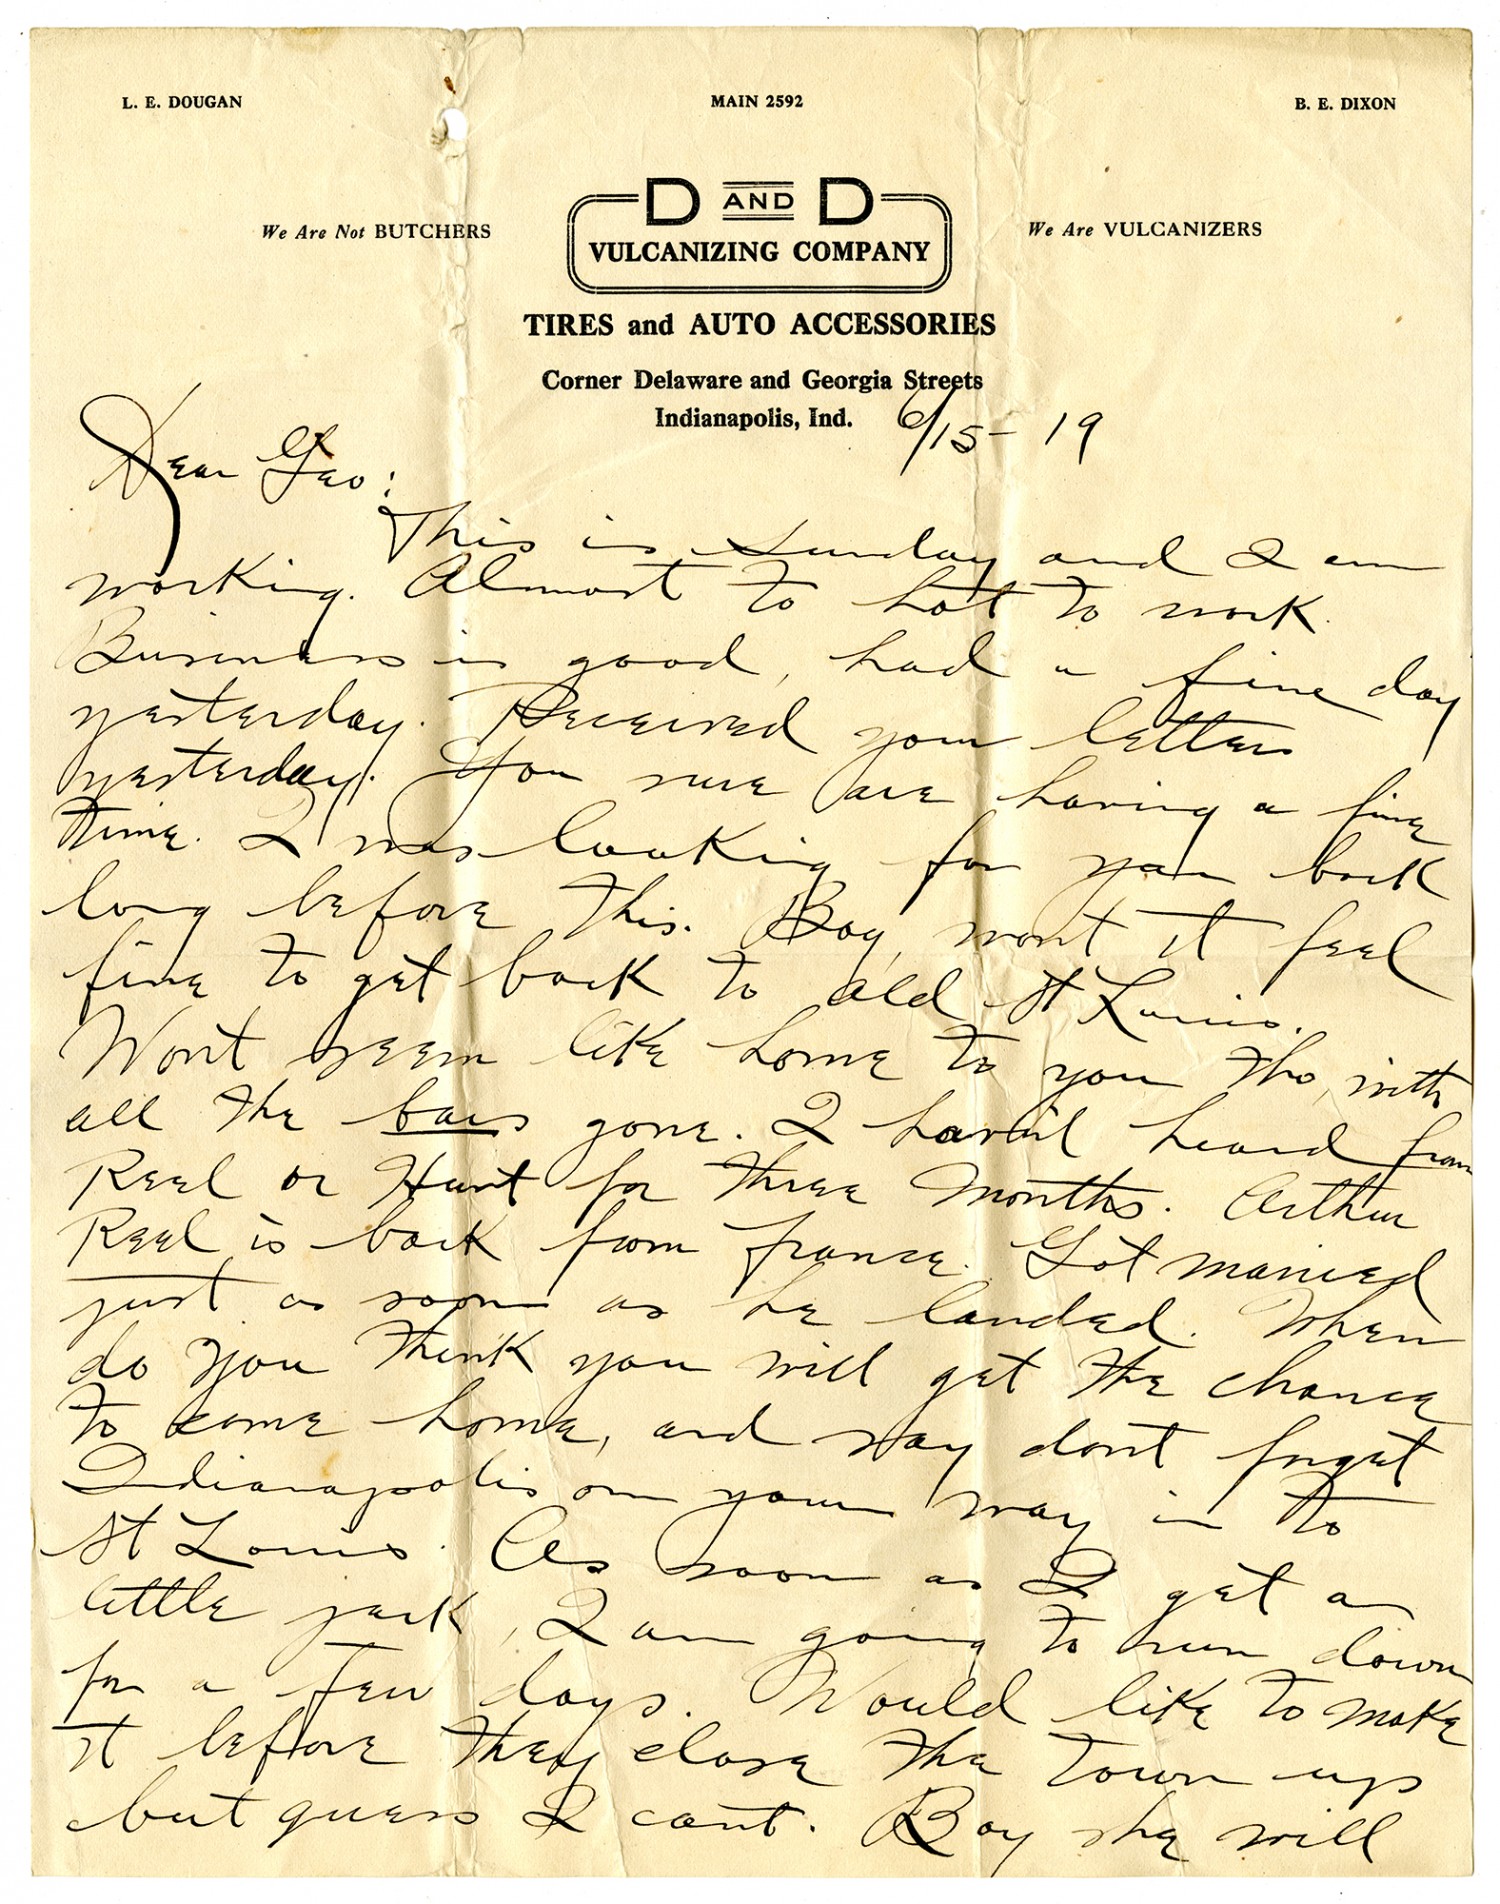 L. E. DOUGAN MAIN 2592 B. E. DIXON
We Are Not BUTCHERS D AND D We Are VULCANIZERS
VULCANIZING COMPANY
TIRES and AUTO ACCESSORIES
Corner Delaware and Georgia Streets
Indianapolis, Ind. 6/15-19
Dear Geo:
This is Sunday and I am
working. Almost to hot to work.
Business is good, had a fine day
yesterday. Received your letters
yesterday. You sure are having a fine
time. I was looking for you back
long before this. Boy, wont it feel
fine to get back to old St Louis.
Wont seem like home to you tho, with
all the bars gone. I havnt heard from
Reel or Hunt for three months. Arthur
Reel is back from france. Got married
just as soon as he landed. When
do you think you will get the chance
to come home, and say dont forget
Indianapolis on your way in to
St Louis. As soon as I get a
little jack, I am going to run down
for a few days. Would like to make
it before they close the town up
but guess I cant. Boy she will